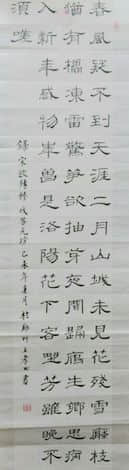 春風疑不到天涯二月山城未見花殘雪壓枝
猶有橘凍雷驚筍欲抽芽夜聞歸雁生鄉思病
入新年感物華曾是洛陽花下客野芳雖晚不
須嗟
錄宋歐陽修戲答元珍乙未年夏月於鄭州書